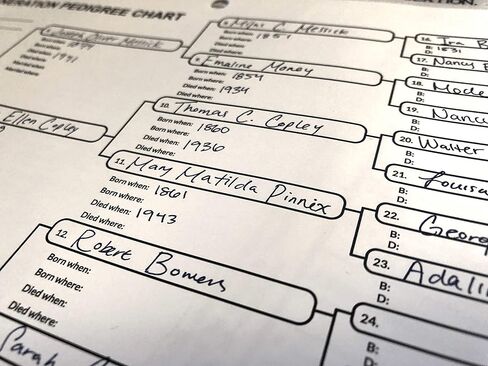 NERATION PEDIGREE CHART
Born when: 1899
Born where:
Died when: 1991
Died where:
Married when:
Married where:
8. Miles C. Messick
Born when: 1851
Born where:
Died when:
Died where:
9. Emaline Money
Born when: 1854
Born where:
Died when: 1934
Died where:
Ellen Copley
10. Thomas C. Copley
Born when: 1860
Born where:
Died when: 1936
Died where:
11. Mary Matilda Pinnix
Born when: 1861
Born where:
Died when: 1943
Died where:
12. Robert Bowers
Born when:
Born where:
Died when:
Died where:
Sarah
16. Ira B
B: 1831
D:
17. Nancy
B:
D:
18. Mode
B:
D:
19. Nanc
B:
D:
20. Walter
B:
D:
21. Louisa
B:
D:
22. Georg
B:
D:
23. Adali
B:
D:
24.
B:
D: